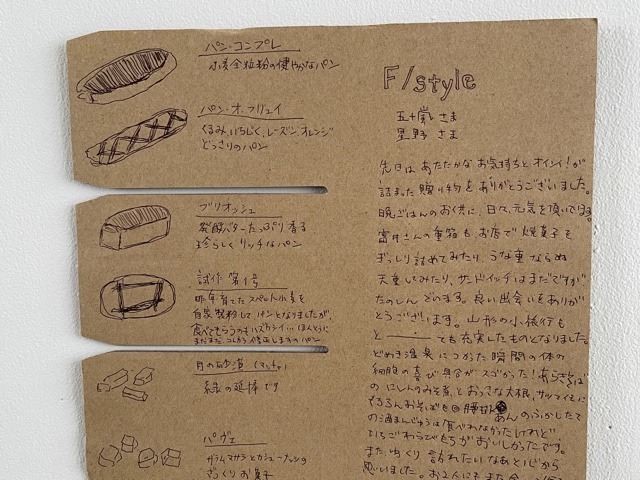 パン・コンプレ
小麦全粒粉の健やかなパン
パン・オ・フリュイ
くるみ、いちじく、レーズン、オレンジ
どっさりのパン
ブリオッシュ
発酵バターたっぷり香る
珍らしくリッチなパン
試作第1号
昨年育てたスペルト小麦を
自家製粉して パンとなりましたが、
食べてもらうのもハズカシイ… ほんとうに
まだまだ これから修正しますのパン
月の砂漠(マッチャ)
緑の延棒です
パヴェ
ガラムマサラとカシューナッツの
ざっくりお菓子
F/style
五十嵐さま
星野さま
先日は あたたかな お気持ちと オイシイ!が
詰まった 贈り物を ありがとうございました。
晩ごはんのお供に、日々、元気を頂いてます。
さんの重箱も、お店で 焼菓子を
ぎっしり詰めてみたり、うな重ならぬ
天重してみたり、サンドイッチはまだですが
たのしんでます。良い出会いをありが
とうございます。山形の小旅行も
と───ても充実したものとなりました。
温泉につかった瞬間の体の
細胞の喜び具合がスゴかった!あらきそば
のにしんのみそ煮とおっきな大根、サツマイモに
おそばも あんのふかしたて
の油まんじゅうは食べれなかったけれど
いちごわらびもちがおいしかったです。
また ゆっくり 訪れたいなぁと心から
思いました。お2人にもまた